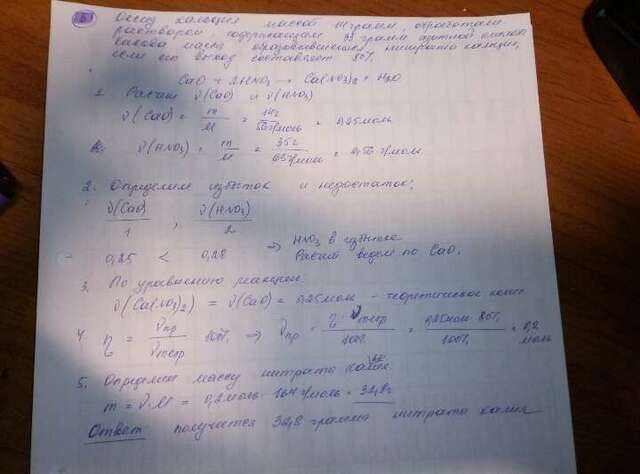 Оксид кальция массой 14 грамм, обработали
раствором, содержащим 35 грамм азотной кислоты
какова масса образовавшегося нитрата кальция,
если его выход составляет 80%.
CaO + 2HNO₃ → Ca(NO₃)₂ + H₂O
1. Расчёт ν(CaO) и ν(HNO₃)
ν(CaO) = m/M = 14г/56г/моль = 0,25моль
ν(HNO₃) = m/M = 35г/63г/моль = 0,56 г/мол
2. Определим избыток и недостаток:
ν(CaO)/1 , ν(HNO₃)/2
0,25 < 0,28 ⇒ HNO₃ в избытке
Расчёт ведём по CaO.
3. По уравнению реакции
ν(Ca(NO₃)₂) = ν(CaO) = 0,25мол - теоретическое колич
4. η = νпр/νтеор · 100% ⇒ νпр = η · νтеор/100% = 0,25мол · 80%/100% = 0,2 моль
5. Определим массу нитрата калия
m = ν·M = 0,2моль · 164 г/моль = 32,8г
Ответ получается 32,8 грамма нитрата калия